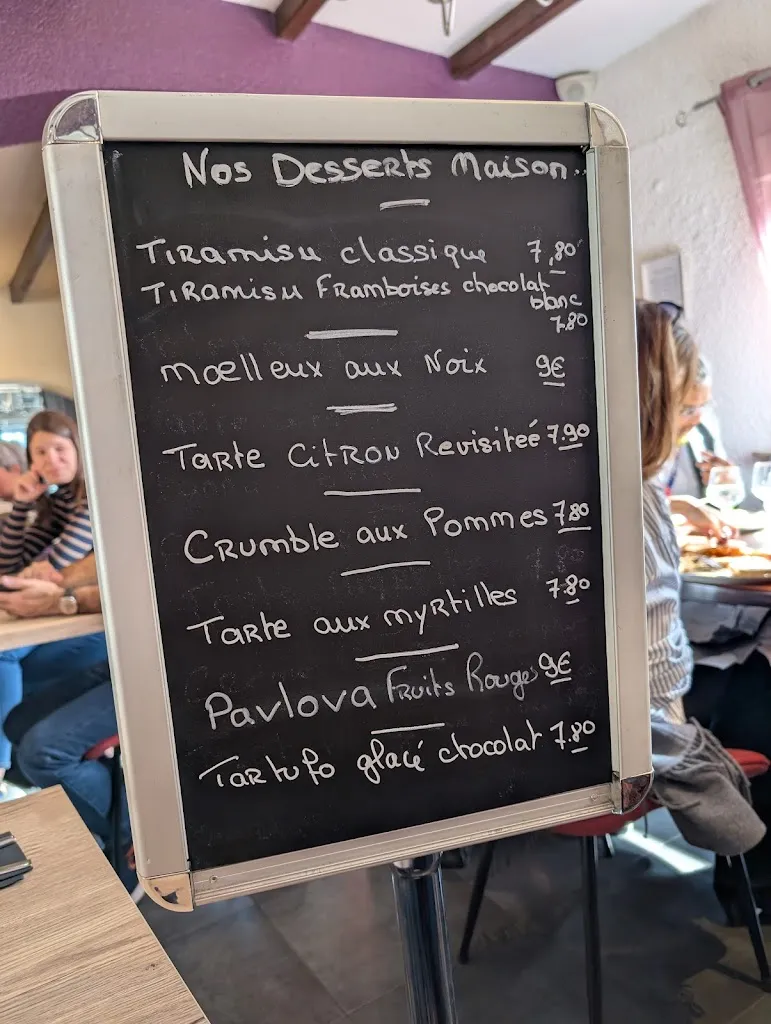 Nos Desserts Maison..
Tiramisu classique 7,80
Tiramisu Framboises chocolat
blanc
7.80
Mœlleux aux Noix 9€
Tarte Citron Revisiteé 7.90
Crumble aux Pommes 7.80
Tarte aux myrtilles 7.80
Pavlova Fruits Rouges 9€
Tartufo glacé chocolat 7.80